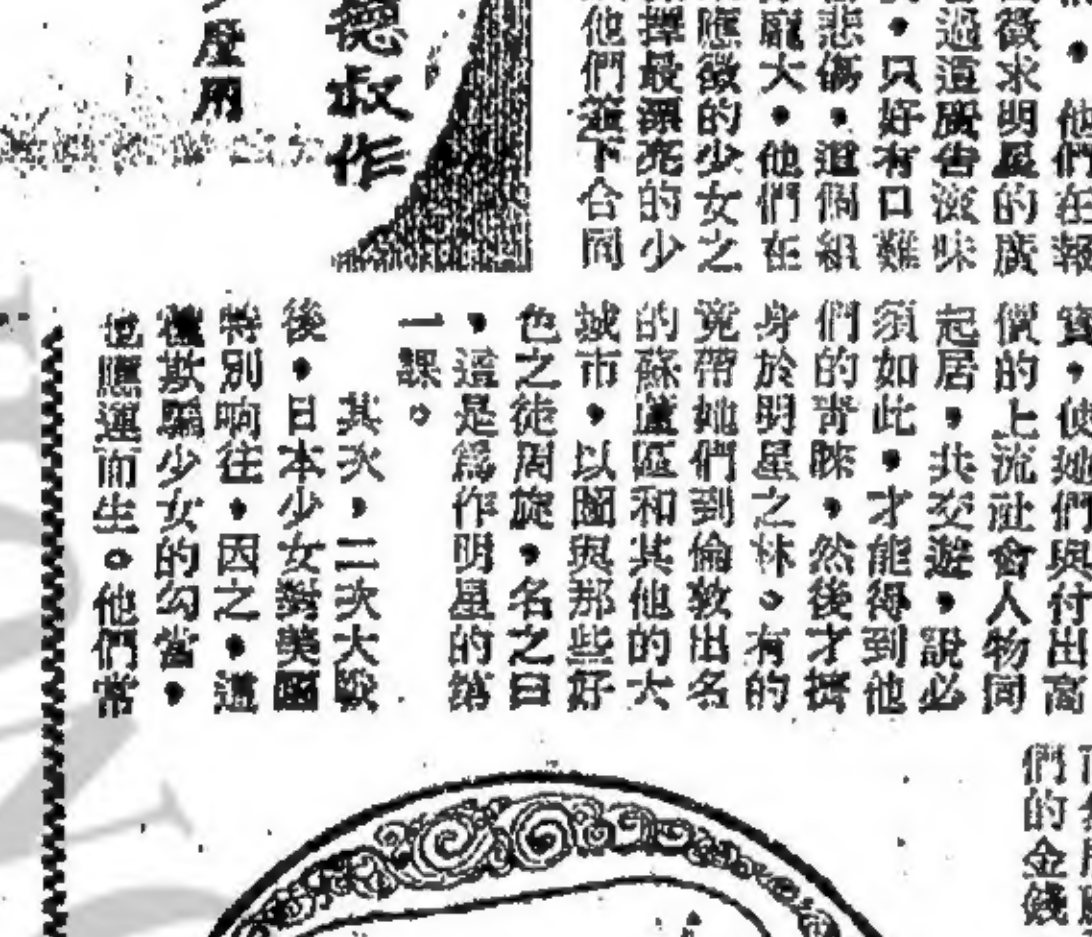 們．他們在報
徵求明星的廣
過這廣告滋味
．只好有口難
悲傷．這個組
龐大．他們在
應徵的少女之
擇最漂亮的少
他們簽下合同
德叔作
度用
實，使她們與付出高
價的上流社會人物同
起居，共交遊，說必
須如此，才能得到他
們的青睞，然後才擠
身於明星之林。有的
竟帶她們到倫敦出名
的蘇盧區和其他的大
城市，以圖與那些好
色之徒周旋，名之曰
，這是爲作明星的第
一課。
其次，二次大戰
後，日本少女對美國
特別响往，因之，這
種欺騙少女的勾當，
也應運而生。他們常
們的金錢